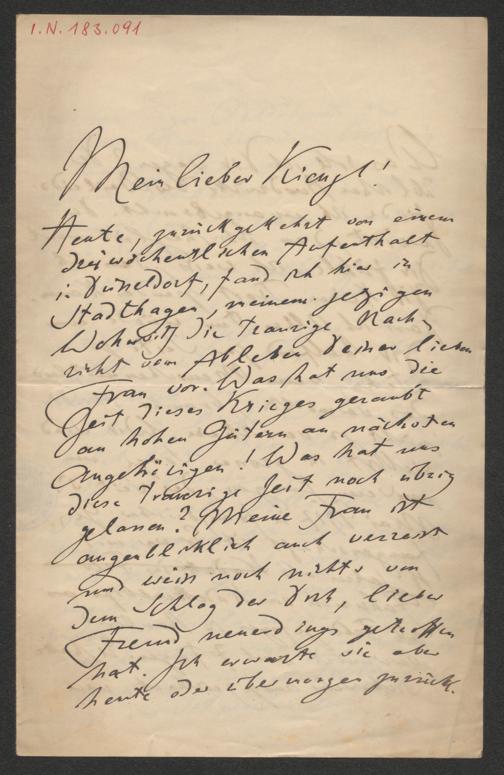 I.N. 183.091
Mein lieber Kienzl!
Heute, zurückgekehrt von einem
dreiwöchentlichen Aufenthalt
in Düsseldorf, fand ich hier in
Stadthagen, meinem jetzigen
Wohnsitz die traurige Nach-
richt vom Ableben Deiner lieben
Frau vor. Was hat uns die
Zeit dieses Krieges geraubt
an hohen Gütern an nächsten
Angehörigen! Was hat uns
diese traurige Zeit noch übrig
gelassen? Meine Frau ist
augenblicklich auch verreist
und weiss noch nichts von
dem Schlag der Dich, lieber
Freund neuerdings getroffen
hat. Ich erwarte sie aber
heute oder übermorgen zurück.